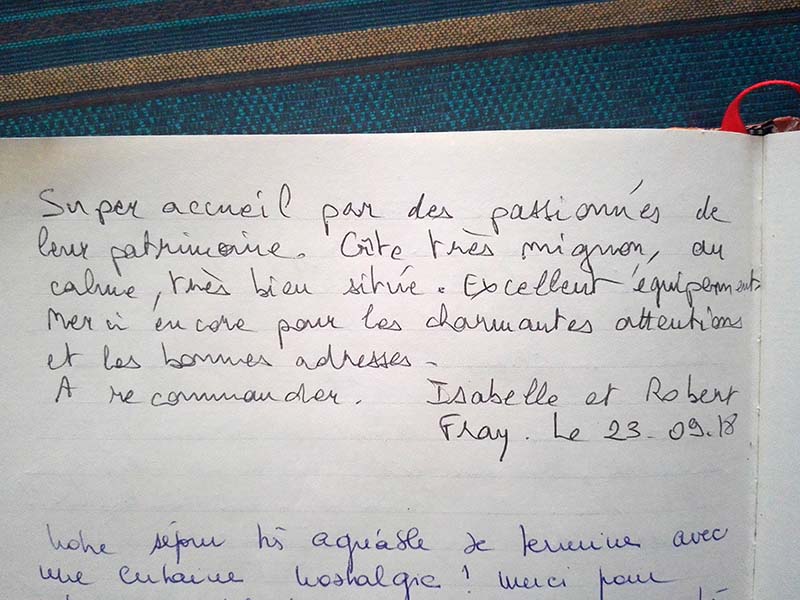 Super accueil par des passionnés de
leur patrimoine. Gîte très mignon, au
calme, très bien située. Excellent équipement
Merci encore pour les charmantes attentions
et les bonnes adresses.
A recommander. Isabelle et Robert
Fray. Le 23.09.18
Notre séjour très agréable se termine avec
une certaine nostalgie ! Merci pour